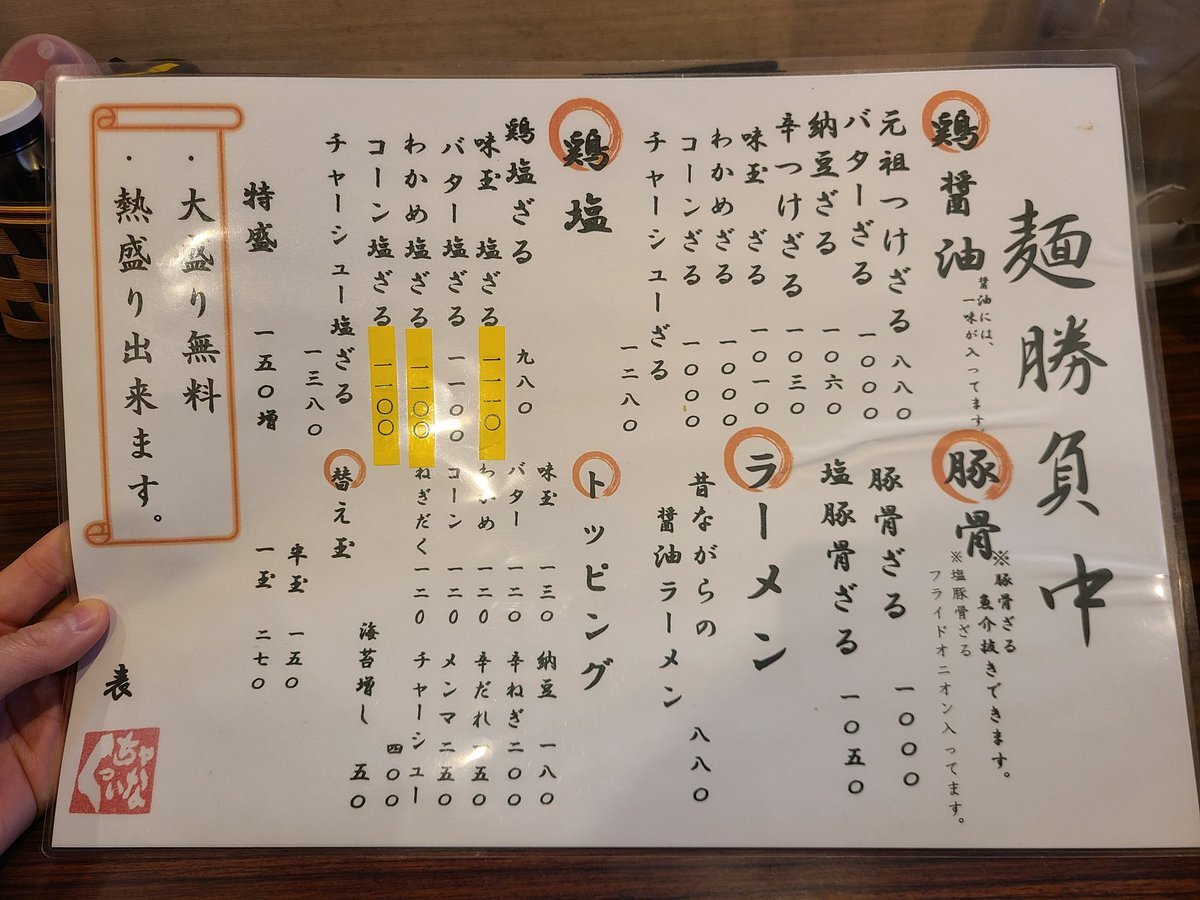 麺勝負中
鶏醤油
醤油には、
一味が入ってます。
元祖つけざる 八八〇
バターざる 一〇〇〇
納豆ざる 一〇六〇
辛つけざる 一〇三〇
味玉ざる 一〇一〇
わかめざる 一〇〇〇
コーンざる 一〇〇〇
チャーシューざる 一二八〇
豚骨
※豚骨ざる
魚介抜きできます。
※塩豚骨ざる
フライドオニオン入ってます。
豚骨ざる 一〇〇〇
塩豚骨ざる 一〇五〇
ラーメン
昔ながらの
醤油ラーメン 八八〇
鶏塩
鶏塩ざる 九八〇
味玉 塩ざる 一一一〇
バター 塩ざる 一一〇〇
わかめ 塩ざる 一一〇〇
コーン 塩ざる 一一〇〇
チャーシュー塩ざる 一三八〇
特盛 一五〇増
トッピング
味玉 一三〇 納豆 一八〇
バター 一二〇 辛ねぎ 二〇〇
わかめ 一二〇 辛だれ 一五〇
コーン 一二〇 メンマ 二五〇
ねぎだく 一二〇 チャーシュー 四〇〇
海苔増し 五〇
替え玉
半玉 一五〇
一玉 二七〇
・大盛り無料
・熱盛り出来ます。
表